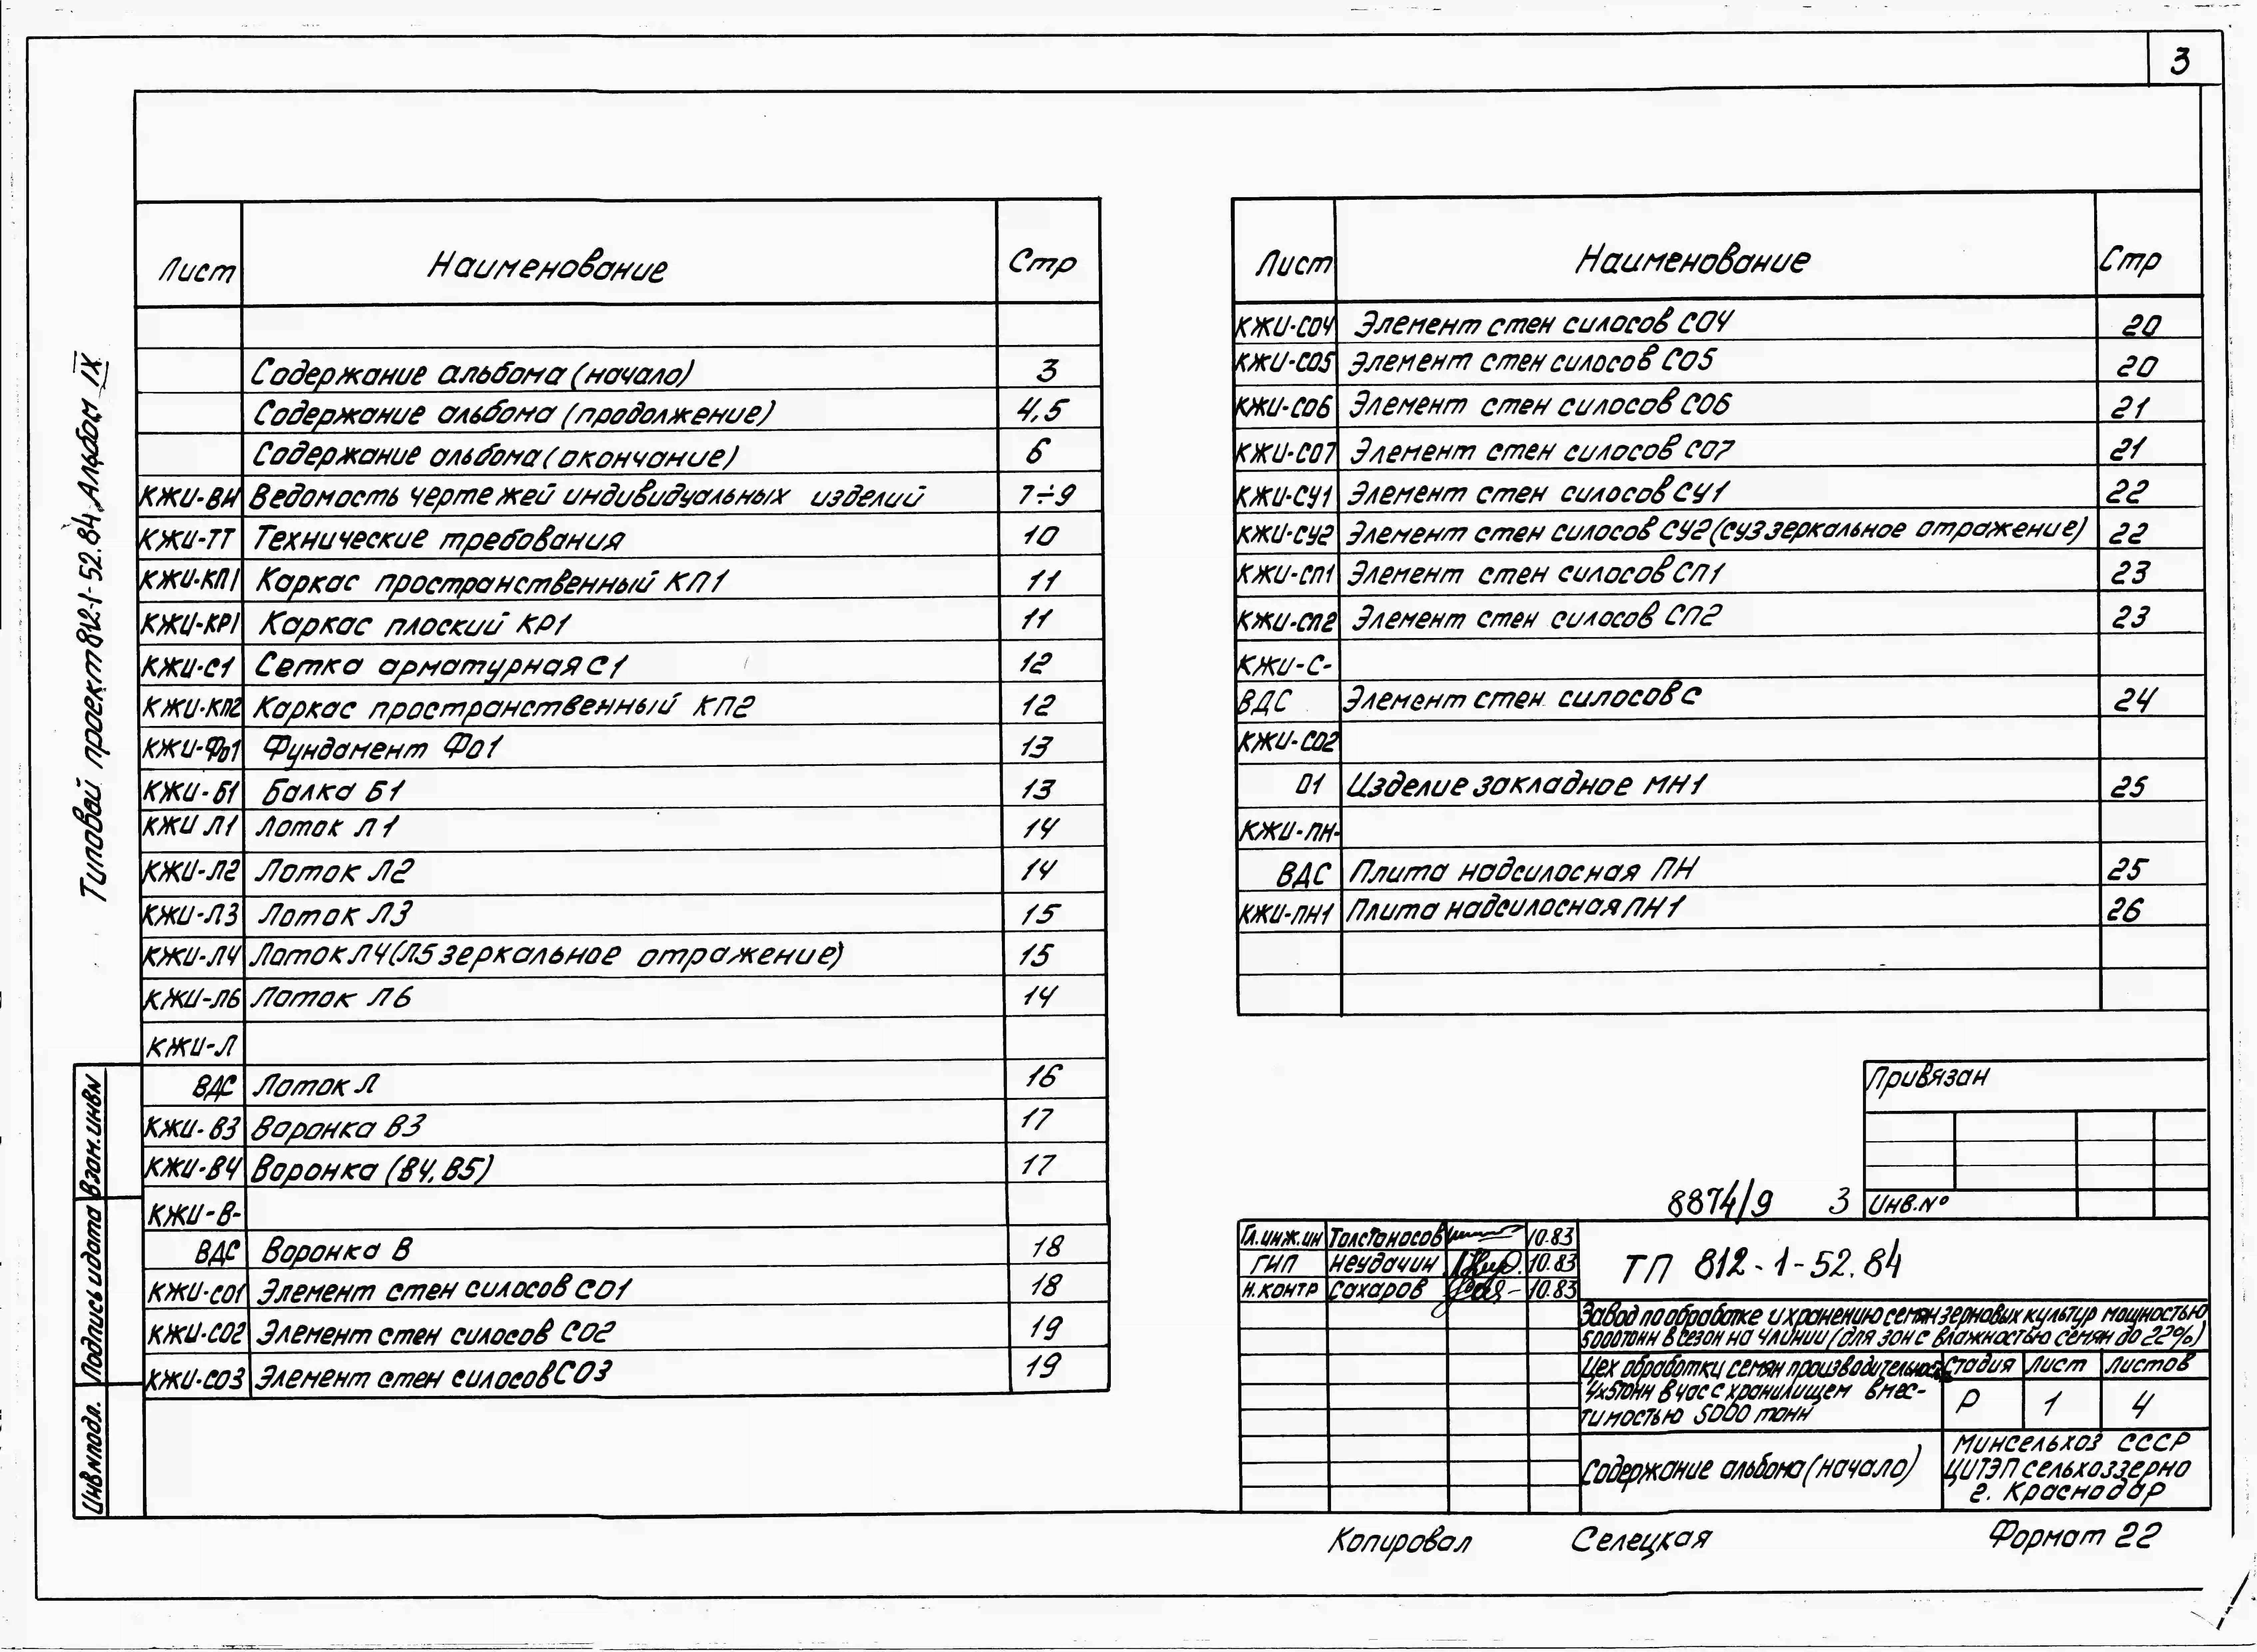 3
Типовой проект 812-1-52.84 Альбом IX
Лист Наименование Стр
Содержание альбома (начало) 3
Содержание альбома (продолжение) 4,5
Содержание альбома (окончание) 6
КЖИ-ВИ Ведомость чертежей индивидуальных изделий 7÷9
КЖИ-ТТ Технические требования 10
КЖИ-КП1 Каркас пространственный КП1 11
КЖИ-КР1 Каркас плоский КР1 11
КЖИ-С1 Сетка арматурная С1 12
КЖИ-КП2 Каркас пространственный КП2 12
КЖИ-Фо1 Фундамент Фо1 13
КЖИ-Б1 Балка Б1 13
КЖИ Л1 Лоток Л1 14
КЖИ-Л2 Лоток Л2 14
КЖИ-Л3 Лоток Л3 15
КЖИ-Л4 Лоток Л4 (Л5 зеркальное отражение) 15
КЖИ-Л6 Лоток Л6 14
КЖИ-Л
ВДС Лоток Л 16
КЖИ-В3 Воронка В3 17
КЖИ-В4 Воронка (В4, В5) 17
КЖИ-В-
ВДС Воронка В 18
КЖИ-СО1 Элемент стен силосов СО1 18
КЖИ-СО2 Элемент стен силосов СО2 19
КЖИ-СО3 Элемент стен силосов СО3 19
Лист Наименование Стр
КЖИ-СО4 Элемент стен силосов СО4 20
КЖИ-СО5 Элемент стен силосов СО5 20
КЖИ-СО6 Элемент стен силосов СО6 21
КЖИ-СО7 Элемент стен силосов СО7 21
КЖИ-СУ1 Элемент стен силосов СУ1 22
КЖИ-СУ2 Элемент стен силосов СУ2 (СУ3 зеркальное отражение) 22
КЖИ-СП1 Элемент стен силосов СП1 23
КЖИ-СП2 Элемент стен силосов СП2 23
КЖИ-С-
ВДС Элемент стен силосов С 24
КЖИ-СО2
01 Изделие закладное МН1 25
КЖИ-ПН-
ВДС Плита надсилосная ПН 25
КЖИ-ПН1 Плита надсилосная ПН1 26
Привязан
Инв.№
8874/9 3
Гл.инж.ин Толстоносов 10.83
ГИП Неудачин 10.83
Н.контр Сахаров 10.83
ТП 812-1-52.84
Завод по обработке и хранению семян зерновых культур мощностью
5000 тонн в сезон на 4 линии (для зон с влажностью семян до 22%)
Цех обработки семян производительностью
4х5тонн в час с хранилищем вмес-
тимостью 5000 тонн
Стадия Лист Листов
Р 1 4
Содержание альбома (начало)
Минсельхоз СССР
ЦИТЭПсельхоззерно
г. Краснодар
Взам.инв.N
Подпись и дата
Инв.N подл.
Копировал Селецкая Формат 22